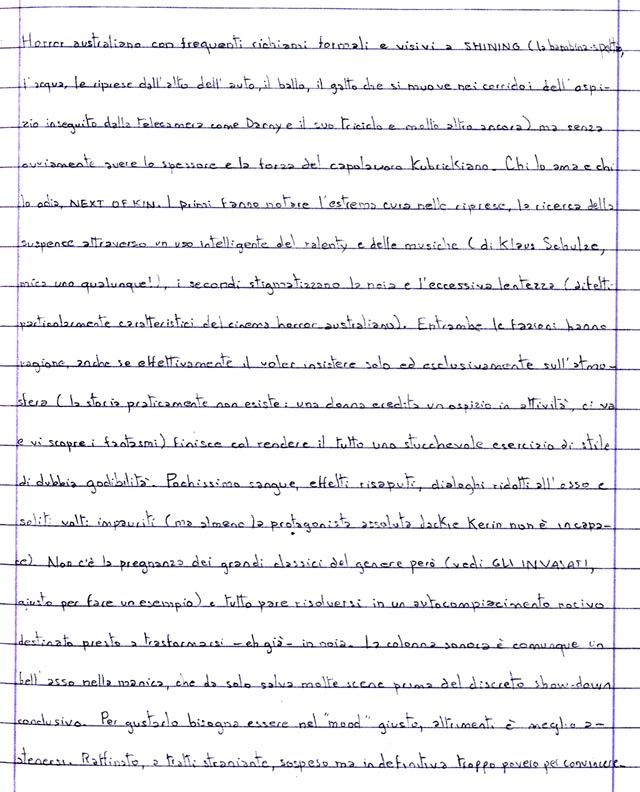 Horror australiano con frequenti richiami formali e visivi a SHINING (la bambina-spettro,
l'acqua, le riprese dall'alto dell'auto, il ballo, il gatto che si muove nei corridoi dell'ospi-
zio inseguito dalla telecamera come Danny e il suo triciclo e molto altro ancora) ma senza
ovviamente avere lo spessore e la forza del capolavoro Kubrickiano. Chi lo ama e chi
lo odia, NEXT OF KIN. I primi fanno notare l'estrema cura nelle riprese, la ricerca della
suspence attraverso un uso intelligente del ralenty e delle musiche (di Klaus Schulze,
mica uno qualunque!), i secondi stigmatizzano la noia e l'eccessiva lentezza (difetti
particolarmente caratteristici del cinema horror australiano). Entrambe le fazioni hanno
ragione, anche se effettivamente il voler insistere solo ed esclusivamente sull'atmo-
sfera (la storia praticamente non esiste: una donna eredita un ospizio in attività, ci va
e vi scopre i fantasmi) finisce col rendere il tutto uno stucchevole esercizio di stile
di dubbia godibilità. Pochissimo sangue, effetti risaputi, dialoghi ridotti all'osso e
soliti volti impauriti (ma almeno la protagonista assoluta Jackie Kerin non è incapa-
ce). Non c'è la pregnanza dei grandi classici del genere però (vedi GLI INVASATI,
giusto per fare un esempio) e tutto pare risolversi in un autocompiacimento nocivo
destinato presto a trasformarsi -eh già- in noia. La colonna sonora è comunque un
bell'asso nella manica, che da solo salva molte scene prima del discreto show-down
conclusivo. Per gustarlo bisogna essere nel "mood" giusto, altrimenti è meglio a-
stenersi. Raffinato, a tratti straniante, sospeso ma in definitiva troppo povero per convincere.